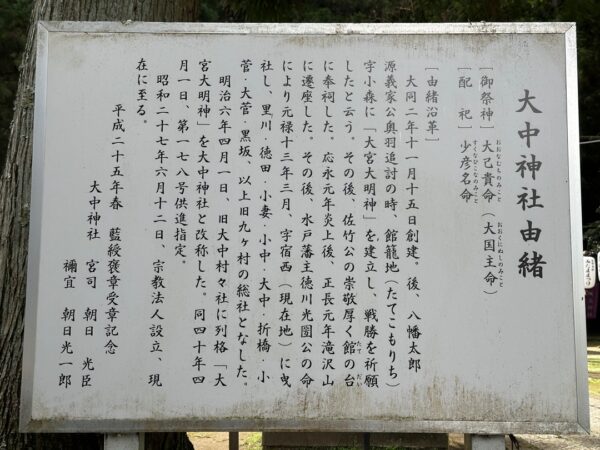 大中神社由緒
［御祭神］大己貴命（大国主命）
おおなむちのみこと おおくにぬしのみこと
［配　祀］少彦名命
すくなひこなのみこと
［由緒沿革］
大同二年十一月十五日創建。後、八幡太郎
源義家公奥羽追討の時、館籠地（たてこもりち）
字小森に「大宮大明神」を建立し、戦勝を祈願
したと云う。その後、佐竹公の崇敬厚く館の台
たて だい
に奉祠した。応永元年炎上後、正長元年滝沢山
に遷座した。その後、水戸藩主徳川光圀公の命
により元禄十三年三月、字宿西（現在地）に曳
社し、里川・徳田・小妻・小中・大中・折橋・小
菅・大菅・黒坂、以上旧九ヶ村の総社となした。
明治六年四月一日、旧大中村々社に列格「大
宮大明神」を大中神社と改称した。同四十年四
月一日、第一七八号供進指定。
昭和二十七年六月十二日、宗教法人設立、現
在に至る。
平成二十五年春　藍綬褒章受章記念
大中神社　宮司　朝日　光臣
禰宜　朝日光一郎